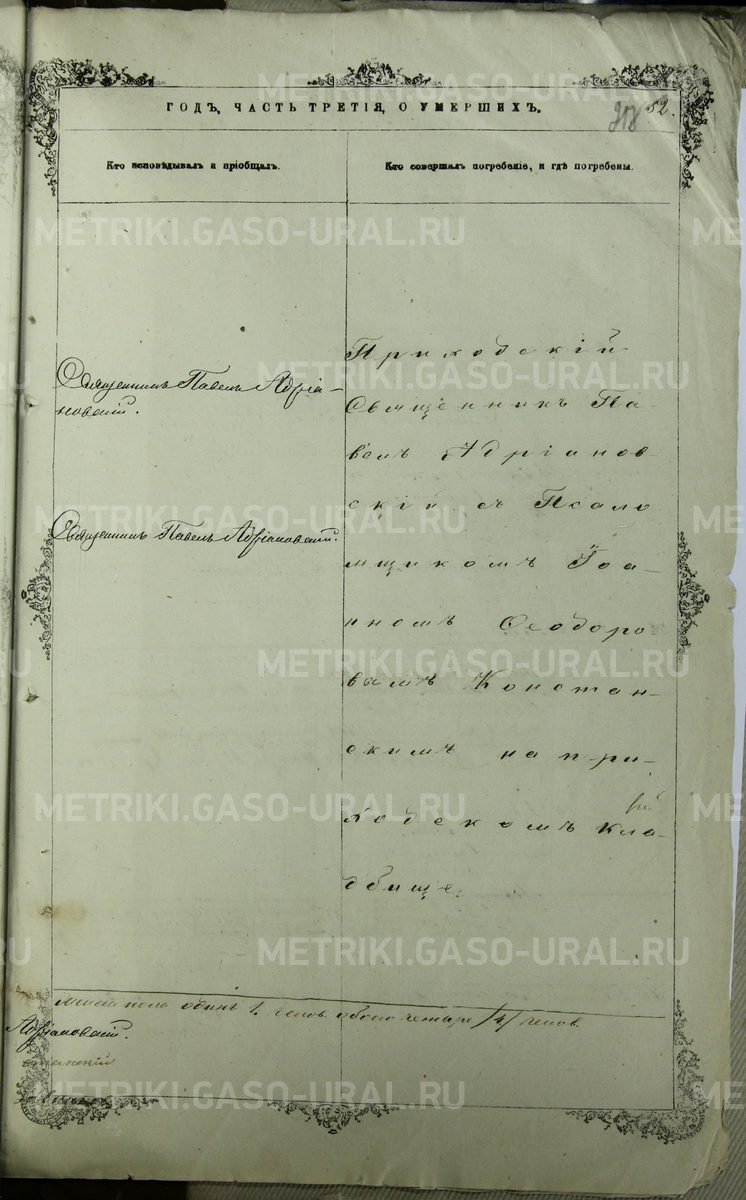 ГОДЪ, ЧАСТЬ ТРЕТІЯ, О УМЕРШИХЪ.
52.
Кто исповѣдывалъ и пріобщалъ.
Кто совершалъ погребеніе, и гдѣ погребены.
Священникъ Павелъ Адріа-
новскій.
Священникъ Павелъ Адріановскій.
Приходскій
Священникъ Па-
велъ Адріанов
скій съ Псало
мщикомъ Іоа-
нномъ Ѳеодоро
вымъ Констан-
скимъ на при-
ходскомъ кла-
дбище.
женска пола одинъ 1, челов. обоего четыре /4/ челов.
Адріановскій.
METRIKI.GASO-URAL.RU